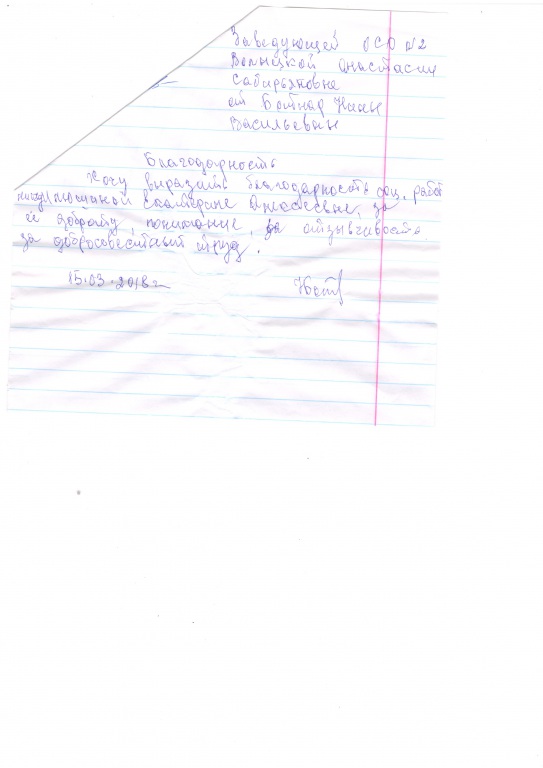 Заведующей ОСО №2
Волынской Анастасии
Сабирьяновне
от Ботнар Нины
Васильевны
Благодарность
Хочу выразить благодарность соц. работ
нику Екатерине за
её доброту, понимание, за отзывчивость
за добросовестный труд.
15.03.2018г